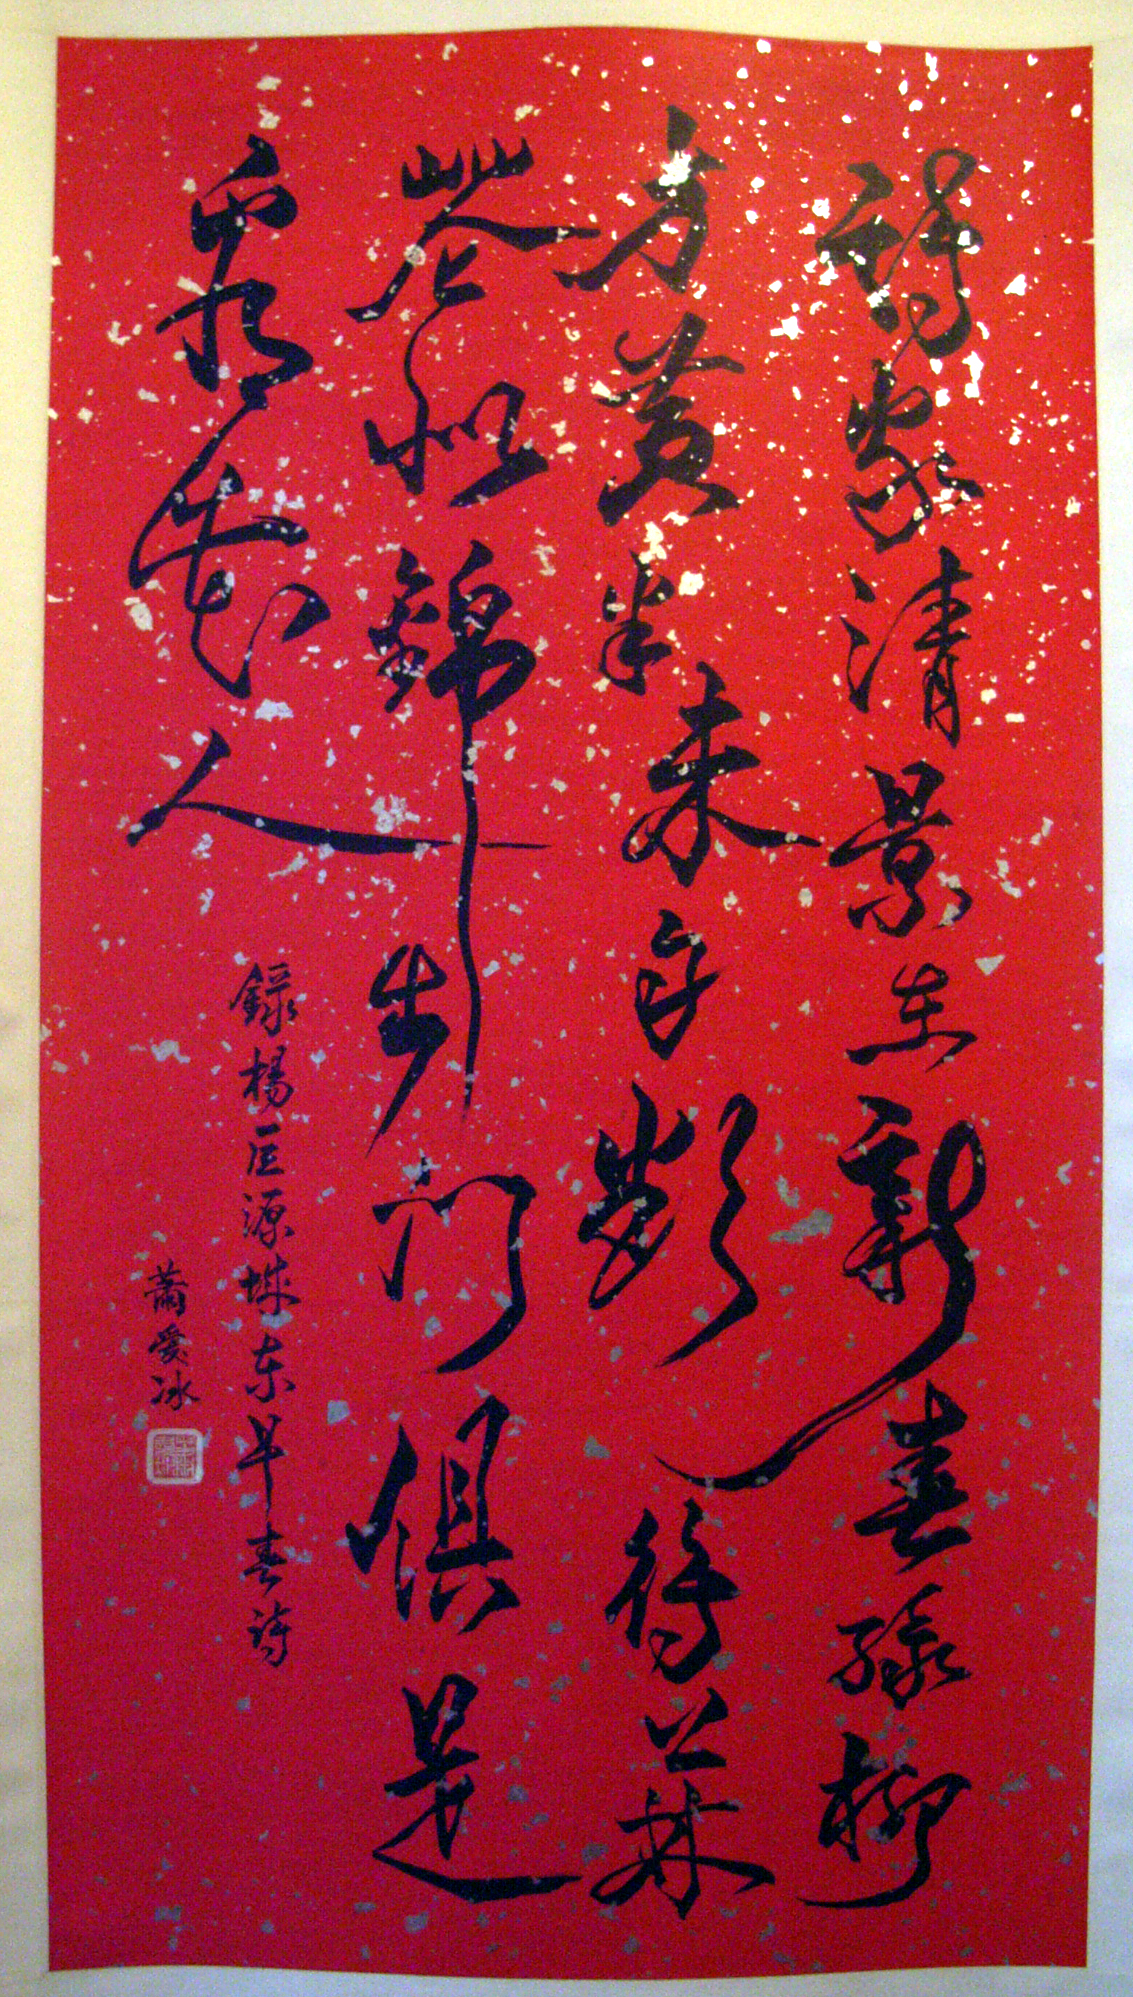 詩家清景在新春綠柳
方黃半未待上林
花似錦出門俱是
看花人
錄楊巨源城東早春詩
蕭愛冰